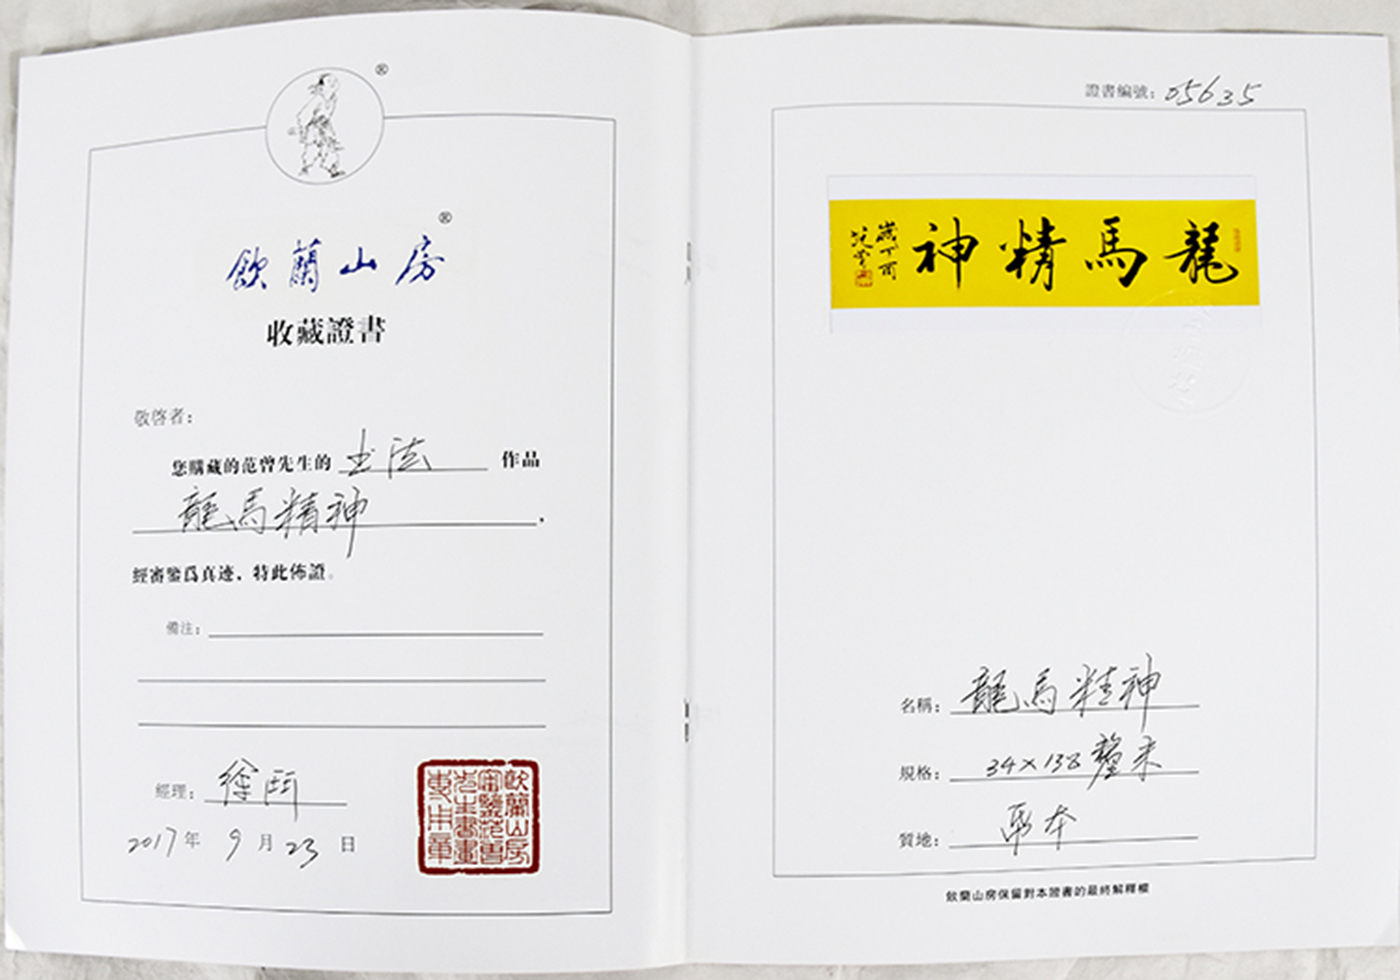 ®
®
飲蘭山房
收藏證書
敬啓者：
您購藏的范曾先生的 书法 作品
龍馬精神.
經審鑒爲真迹，特此佈證。
備注：
經理：徐
2017年 9月 23日
飲蘭山房
審鑒范曾
先生書畫
專用章
證書編號：05635
龍馬精神
歲丁酉
范曾
名稱：龍馬精神
規格：34×138 釐米
質地：
飲蘭山房保留對本證書的最終解釋權